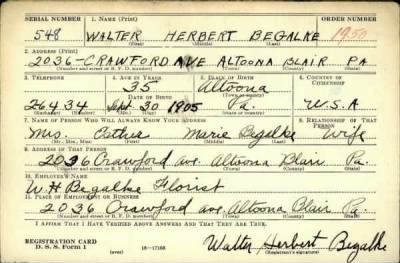 SERIAL NUMBER 1. NAME (Print) ORDER NUMBER
548 WALTER HERBERT BEGALKE 1950
(First) (Middle) (Last)
2. ADDRESS (Print)
2036-CRAWFORD AVE ALTOONA BLAIR PA
(Number and street or R. F. D. number) (Town) (County) (State)
3. TELEPHONE 4. AGE IN YEARS 5. PLACE OF BIRTH 6. COUNTRY OF CITIZENSHIP
35 Altoona
26434 Sept. 30 1905 Pa. U.S.A
(Exchange) (Number) (Mo.) (Day) (Yr.) (State or country)
7. NAME OF PERSON WHO WILL ALWAYS KNOW YOUR ADDRESS 8. RELATIONSHIP OF THAT PERSON
Mrs. Marie Begalke Wife
(Mr., Mrs., Miss) (First) (Middle) (Last)
9. ADDRESS OF THAT PERSON
2036 Crawford ave. Altoona Blair Pa.
(Number and street or R. F. D. number) (Town) (County) (State)
10. EMPLOYER'S NAME
W. H Begalke Florist
11. PLACE OF EMPLOYMENT OR BUSINESS
2036 Crawford ave. Altoona Blair Pa.
(Number and street or R. F. D. number) (Town) (County) (State)
I AFFIRM THAT I HAVE VERIFIED ABOVE ANSWERS AND THAT THEY ARE TRUE.
REGISTRATION CARD
D. S. S. Form 1 (over) 16-17105 Walter Herbert Begalke
(Registrant's signature)